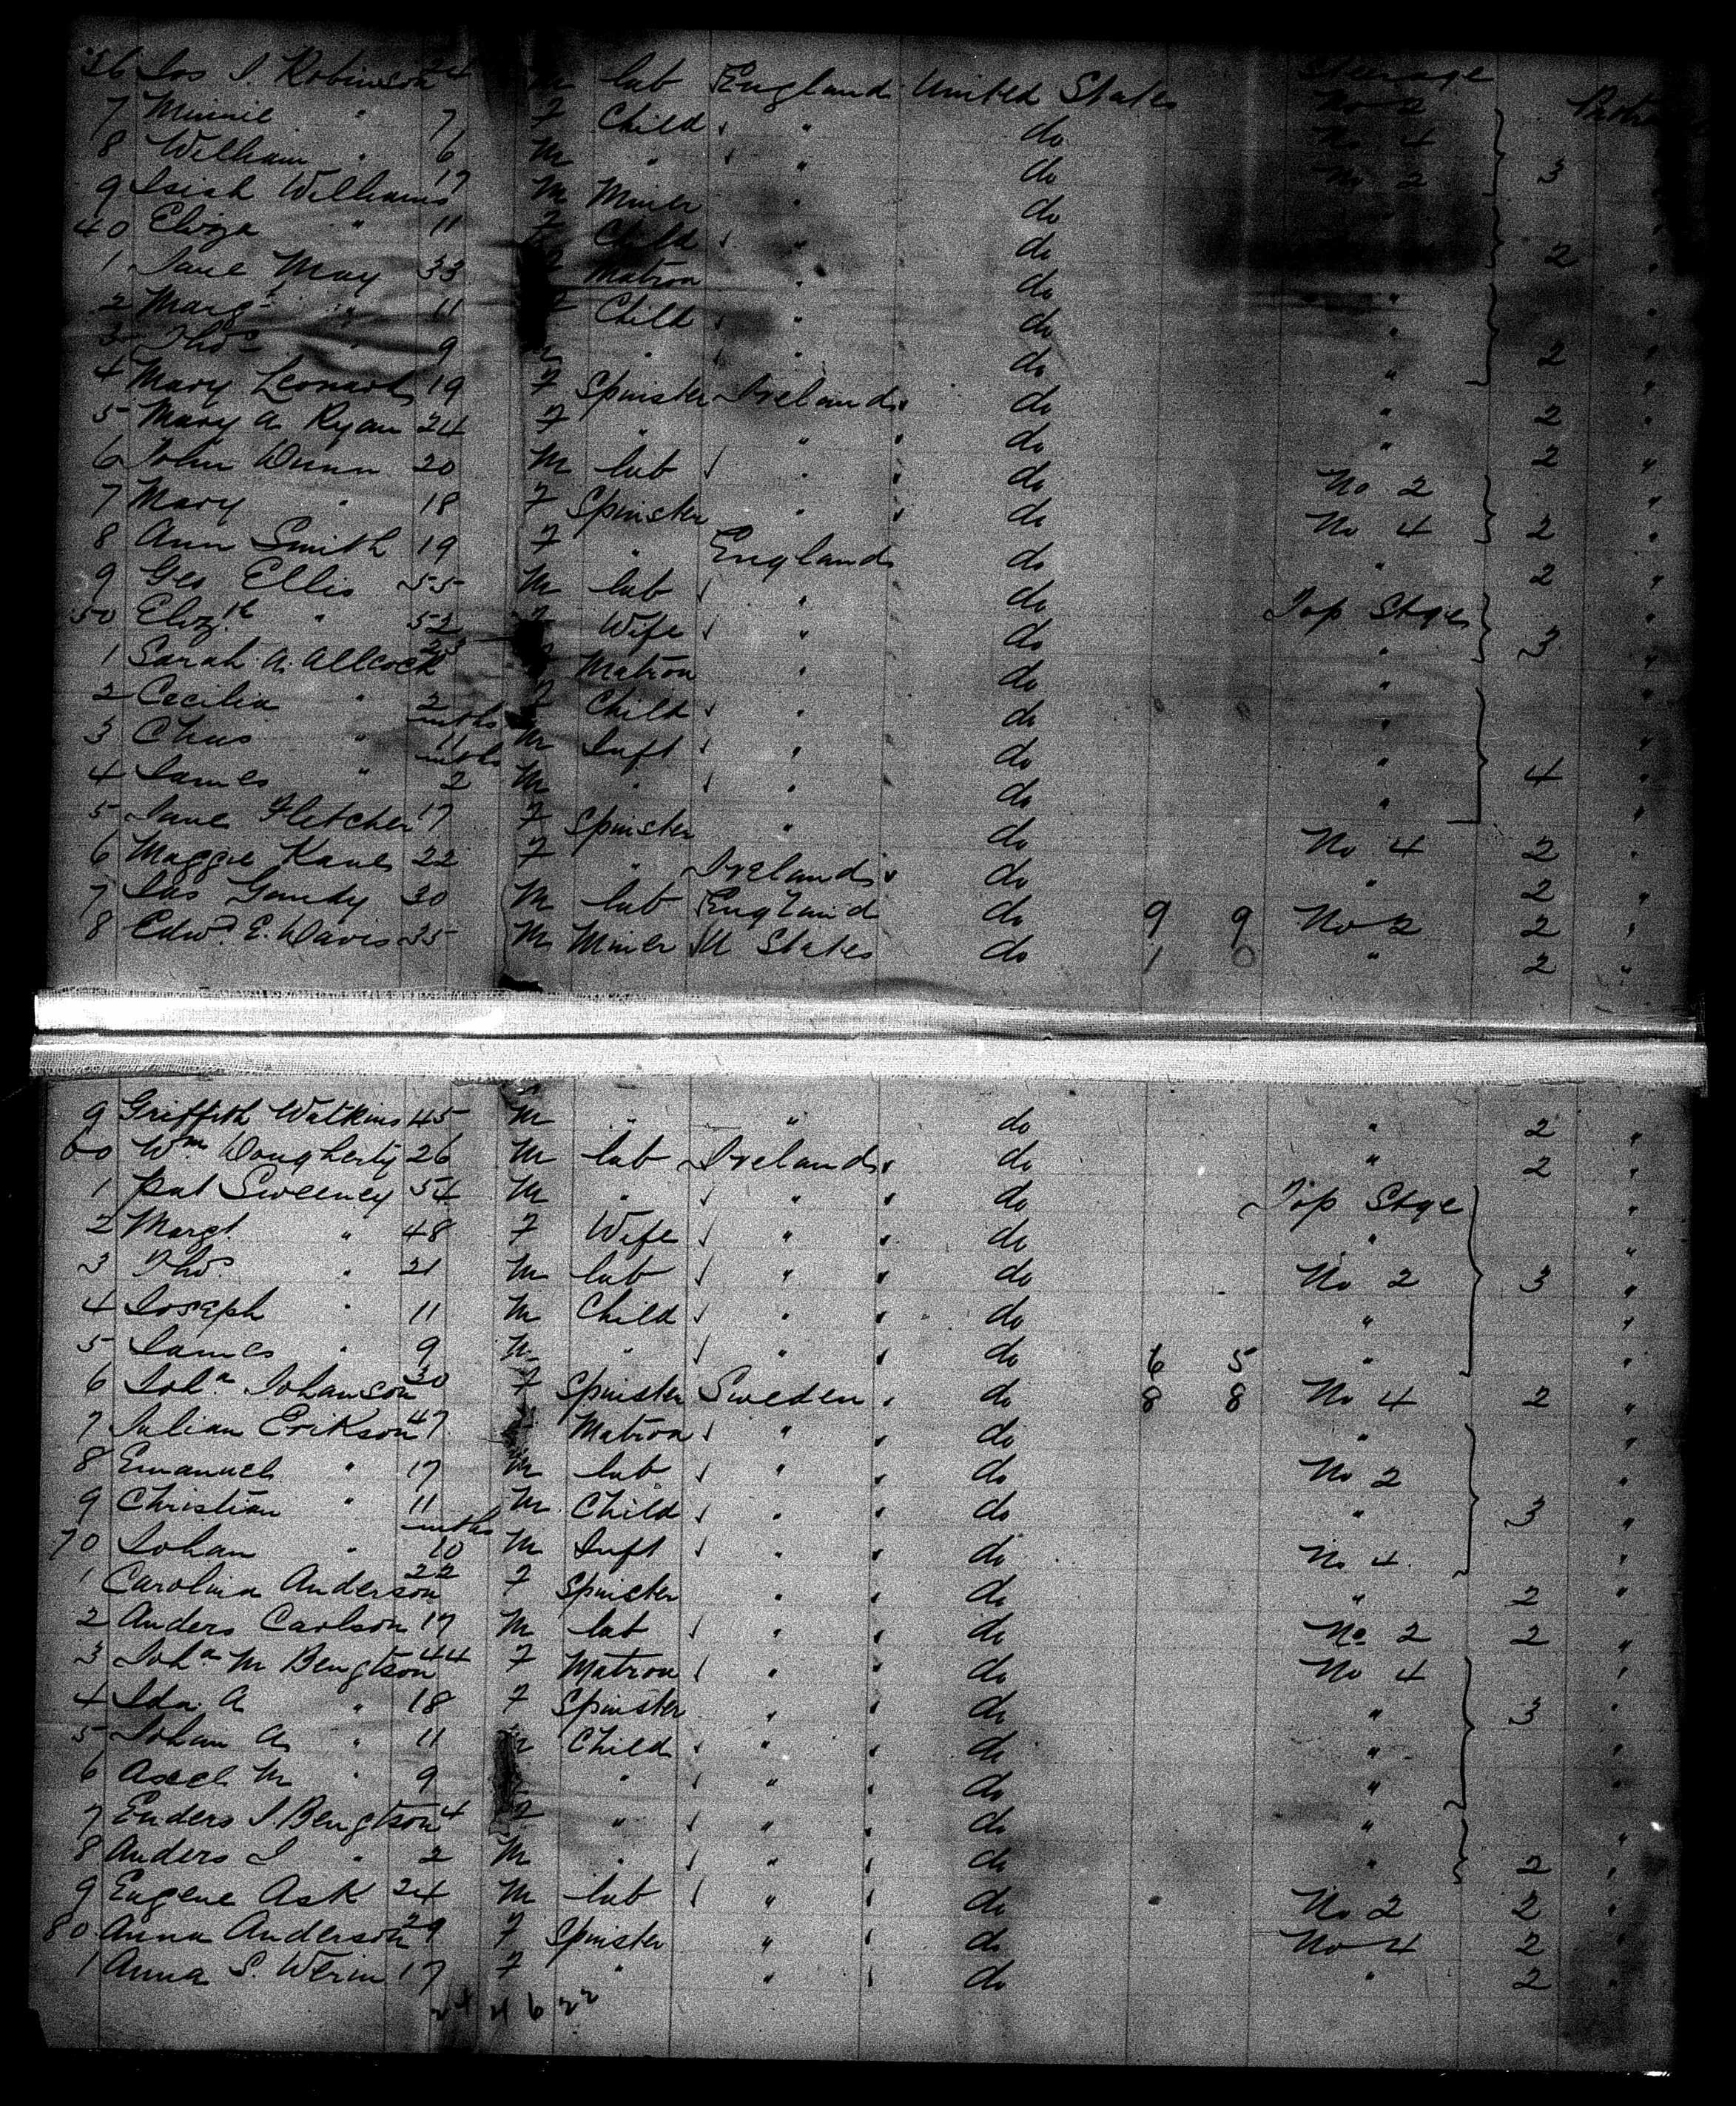 36 Jos I Robinson 24 M lab England United States Steerage No 2
7 Minnie " 7 F Child " do No 4
8 William " 6 M " " do No 2 3
9 Isiah Williams 17 M Miner " do
40 Eliza " 11 F Child " do 2 "
1 Jane May 33 Matron " do " "
2 Margt " 11 F Child " do " "
3 Thos " 9 " " do " 2 "
4 Mary Leonard 19 F Spinster Ireland do " 2 "
5 Mary A Ryan 24 F " " do " 2 "
6 John Dunn 20 M lab " do No 2 "
7 Mary " 18 F Spinster " do No 4 2 "
8 Ann Smith 19 F " England do " 2 "
9 Geo Ellis 55 M lab " do Top Stge "
50 Elizth " 52 F Wife " do " 3 "
1 Sarah A. Allcock 23 Matron " do " "
2 Cecilia " 2 F Child " do " "
3 Chas " mths 11 M Inft " do " 4 "
4 James " mths 2 M " " do " "
5 Jane Fletcher 17 F Spinster " do No 4 2 "
6 Maggie Kane 22 F " Ireland do " 2 "
7 Jas Gandy 30 M lab England do 9 9 No 2 2 "
8 Edwd E. Davis 35 M Miner U States do 1 0 " 2 "
9 Griffith Watkins 45 M " " do " 2 "
60 Wm Dougherty 26 M lab Ireland do " 2 "
1 Pat Sweeney 54 M " " do Top Stge "
2 Margt " 48 F Wife " do " "
3 Thos " 21 M lab " do No 2 3 "
4 Joseph " 11 M Child " do " "
5 James " 9 M " " do 6 5 " "
6 Joha Johanson 30 F Spinster Sweden do 8 8 No 4 2 "
7 Julian Erikson 47 Matron " do " "
8 Emanuel " 17 M lab " do No 2 "
9 Christian " 11 M Child " do " 3 "
70 Johan " mths 10 M Inft " do No 4 "
1 Carolina Anderson 22 F Spinster " do " 2 "
2 Anders Carlson 17 M lab " do No 2 2 "
3 Joha M Bengtson 44 F Matron " do No 4 "
4 Ida A " 18 F Spinster " do " 3 "
5 Johan A " 11 Child " do " "
6 Axel M " 9 " " do " "
7 Enders J Bengtson 4 " " do " "
8 Anders J " 2 M " " do " 2 "
9 Eugene Ask 24 M lab " do No 2 2 "
80 Anna Anderson 29 F Spinster " do No 4 2 "
1 Anna S. Werin 17 F " " do " 2 "